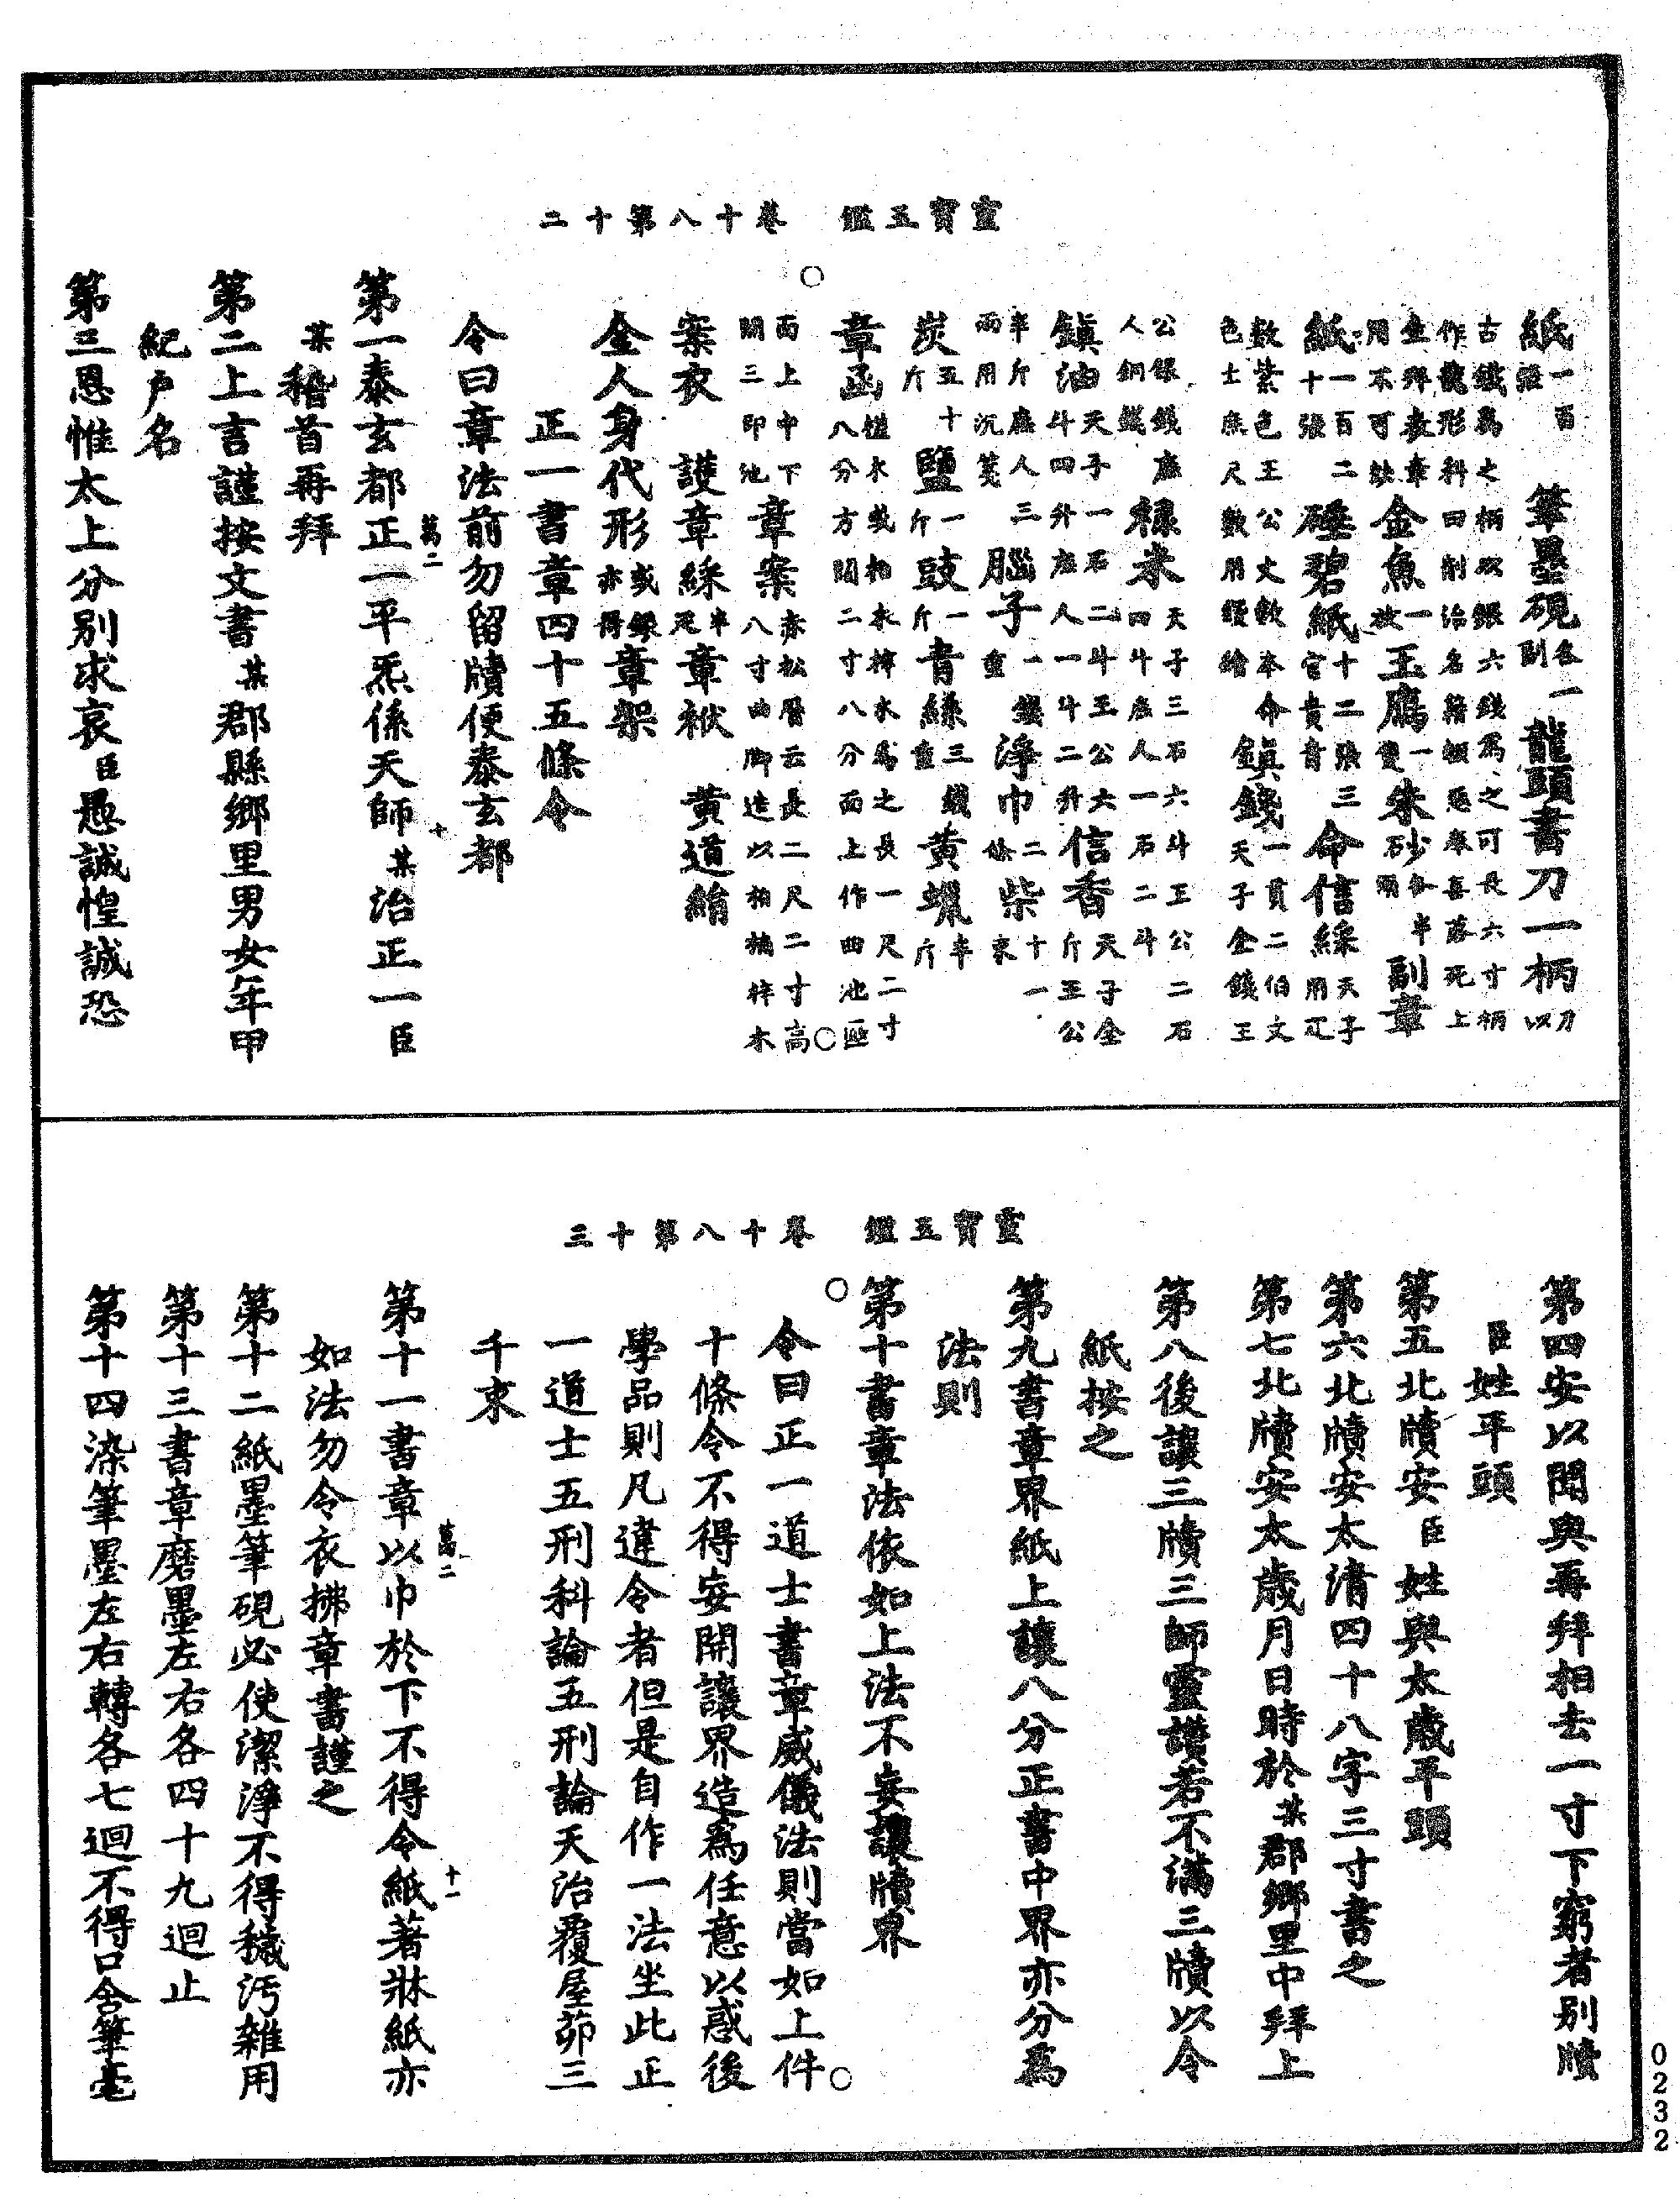 靈寶玉鑑　卷十八第十二
紙一百張　筆墨硯各一副龍頭書刀一柄刀以
古鐵為之柄以銀六錢為之可長六寸柄
作龍形科曰削治名籍頓惡奉喜落死上
生拜表章用不可缺金魚一枚玉鴈一雙朱砂各半兩副章
紙一百二十張硾碧紙十二張三官貴音命信綵天子用疋
數紫色王公丈數本命色士庶尺數用縵繒鎮錢一貫二伯文天子金錢王
公銀錢庶人銅錢祿米天子三石六斗王公二石四斗庶人一石二斗
鎮油天子一石二斗王公六斗四升庶人一斗二升信香天子金斤王公
半斤庶人三兩用沉箋腦子一重鑞淨巾二條柴十一束
炭五十斤鹽一斤豉一斤青綠三鐶重黃蠟半斤
章函槿木或柏木梓木為之長一尺二寸八分方闊二寸八分面上作曲池匭
面上中下開三印池章案赤松曆云長二尺二寸高八寸曲脚造以柏楠梓木
案衣　護章綵半疋章袱　黃道絹
金人身代形或銀亦得章架
正一書章四十五條令
令曰章法前勿留牘便泰玄都
第一泰玄都正一平炁係天師某治正一臣
某稽首再拜
第二上言謹按文書某郡縣鄉里男女年甲
紀户名
第三恩惟太上分別求哀臣愚誠惶誠恐
萬二
十
靈寶玉鑑　卷十八第十三
第四安以聞與再拜相去一寸下窮者別牘
臣姓平頭
第五北牘安臣姓與太歲平頭
第六北牘安太清四十八字三寸書之
第七北牘安太歲月日時於某郡鄉里中拜上
第八後讓三牘三師靈讚若不滿三牘以令
紙按之
第九書章界紙上讓八分正書中界亦分為
法則
第十書章法依如上法不妄讓牘界
令曰正一道士書章威儀法則當如上件
十條令不得妄開讓界造為任意以惑後
學品則凡違令者但是自作一法坐此正
一道士五刑科論五刑論天治覆屋茆三
千束
第十一書章以巾於下不得令紙著牀紙亦
如法勿令衣拂章書謹之
第十二紙墨筆硯必使潔淨不得穢污雜用
第十三書章磨墨左右各四十九迴止
第十四染筆墨左右轉各七迴不得口含筆毫
萬二
十一
0232